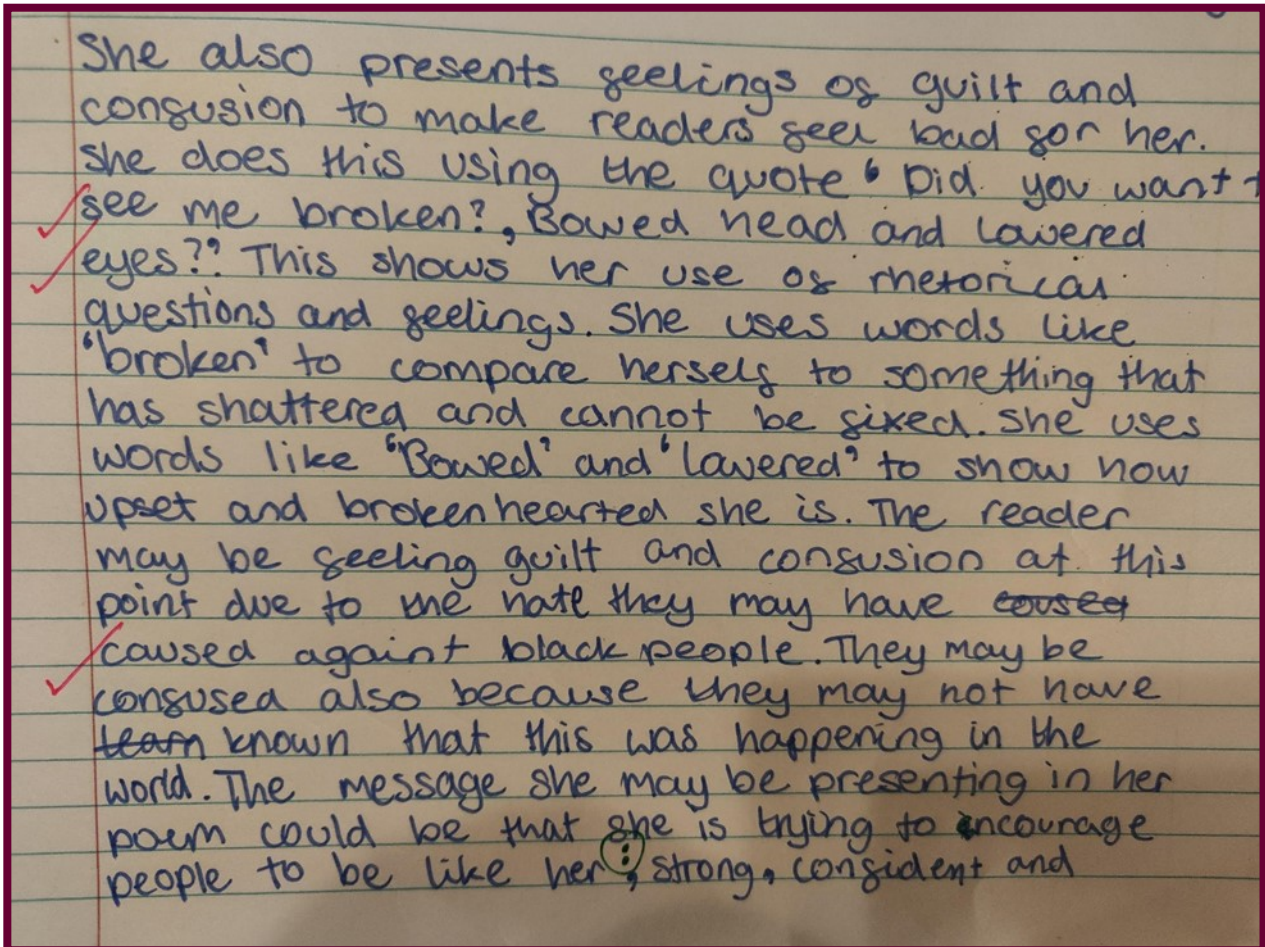 She also presents feelings of guilt and
confusion to make readers feel bad for her.
she does this using the quote 'Did you want t
see me broken?, Bowed head and lowered
eyes??' This shows her use of rhetorical
questions and feelings. She uses words like
'broken' to compare herself to something that
has shattered and cannot be fixed. She uses
words like 'Bowed' and 'lowered' to show how
upset and brokenhearted she is. The reader
may be feeling guilt and confusion at this
point due to the hate they may have caused
caused againt black people. They may be
confused also because they may not have
learn known that this was happening in the
world. The message she may be presenting in her
poem could be that she is trying to encourage
people to be like her; strong, confident and